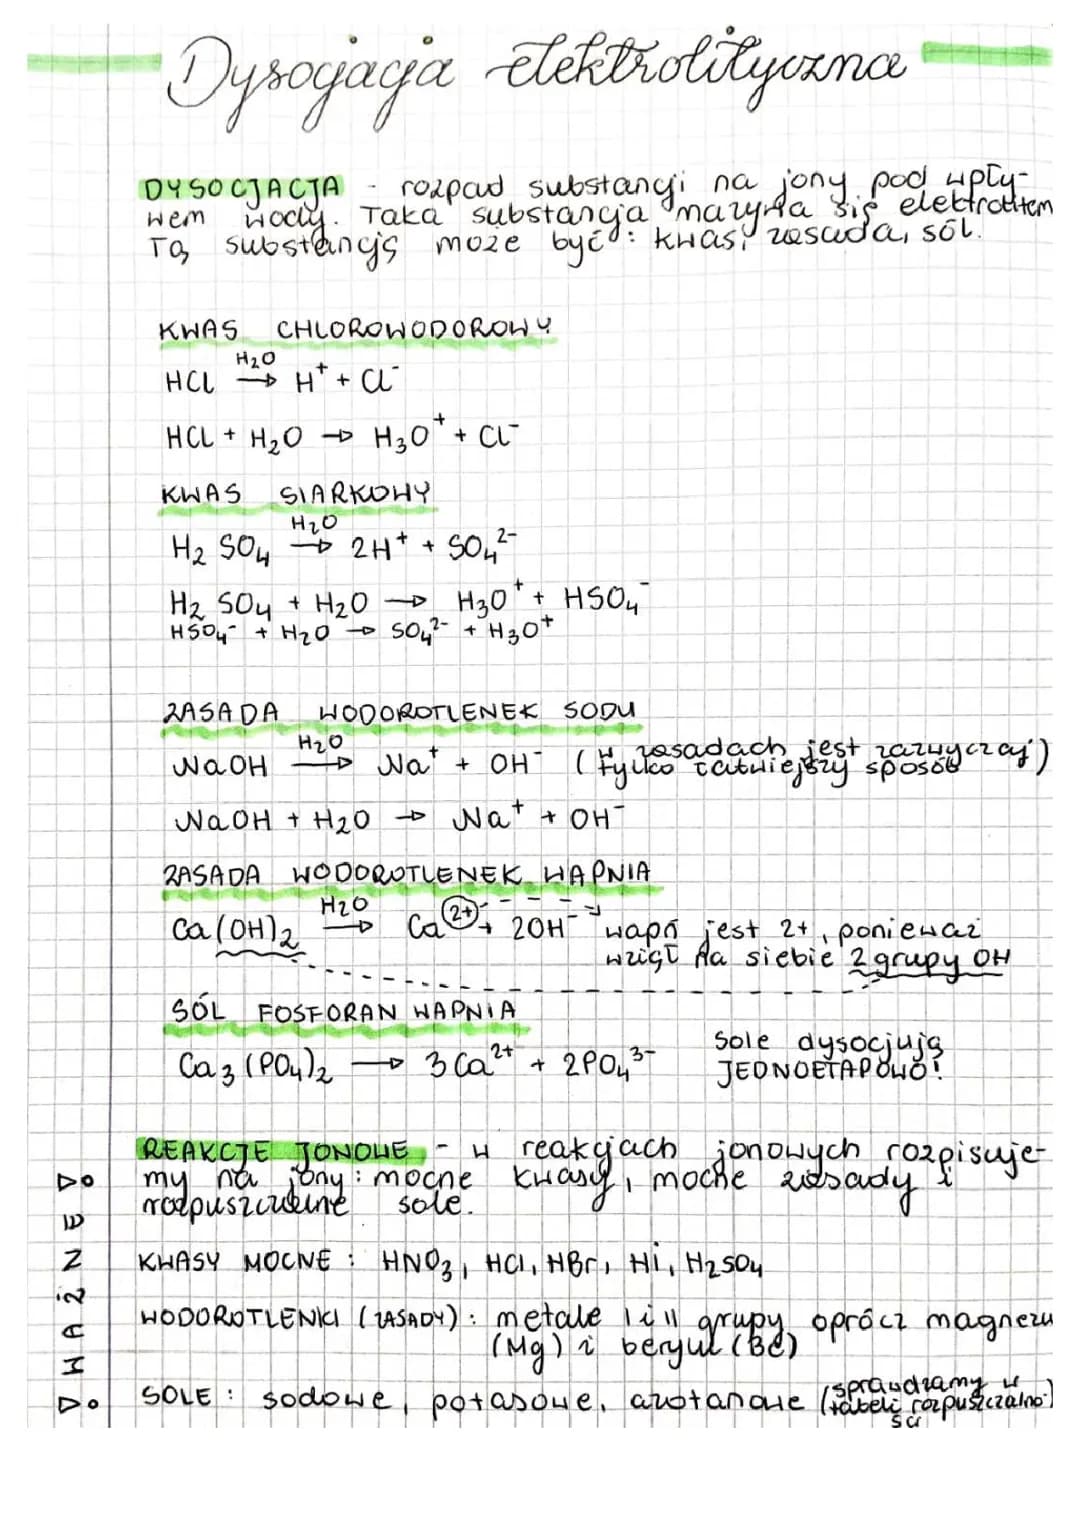 Dysocjacja elektrolityczna
DYSOCJACJA - rozpad substancji na jony pod wpły-
wem wody. Taka substancja nazywa się elektrolitem
Tą substancją może być: kwas, zasada, sól.
KWAS CHLOROWODOROWY
HCl H₂O→ H⁺ + Cl⁻
HCl + H₂O → H₃O⁺ + Cl⁻
KWAS SIARKOWY
H₂SO₄ H₂O→ 2H⁺ + SO₄²⁻
H₂SO₄ + H₂O → H₃O⁺ + HSO₄⁻
HSO₄⁻ + H₂O → SO₄²⁻ + H₃O⁺
ZASADA WODOROTLENEK SODU
NaOH H₂O→ Na⁺ + OH⁻ (w zasadach jest zazwyczaj
tylko łatwiejszy sposób)
NaOH + H₂O → Na⁺ + OH⁻
ZASADA WODOROTLENEK WAPNIA
Ca(OH)₂ H₂O→ Ca²⁺ + 2OH⁻ wapń jest 2+, ponieważ
wziął na siebie 2 grupy OH
SÓL FOSFORAN WAPNIA
Ca₃(PO₄)₂ → 3Ca²⁺ + 2PO₄³⁻ Sole dysocjują
JEDNOETAPOWO!
REAKCJE JONOWE - w reakcjach jonowych rozpisuje-
my na jony: mocne kwasy, mocne zasady i
rozpuszczalne sole.
KWASY MOCNE: HNO₃, HCl, HBr, Hi, H₂SO₄
WODOROTLENKI (ZASADY): metale I i II grupy oprócz magnezu
(Mg) i berylu (Be)
SOLE: sodowe, potasowe, azotanowe (sprawdzamy w
tabeli rozpuszczalno-
ści)